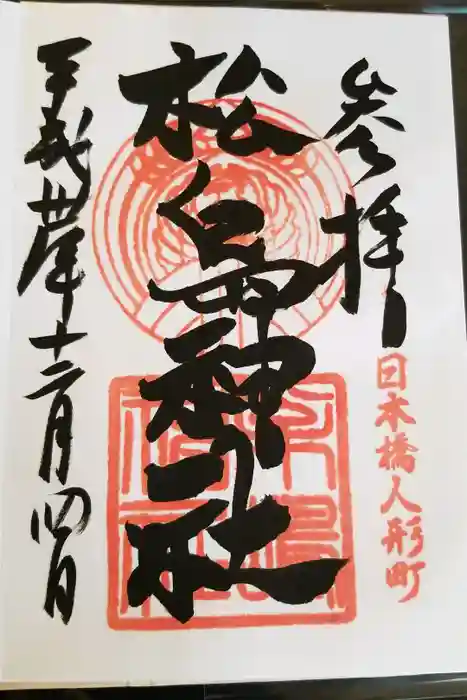 参拝
日本橋人形町
松島神社
平成丗年十二月四日